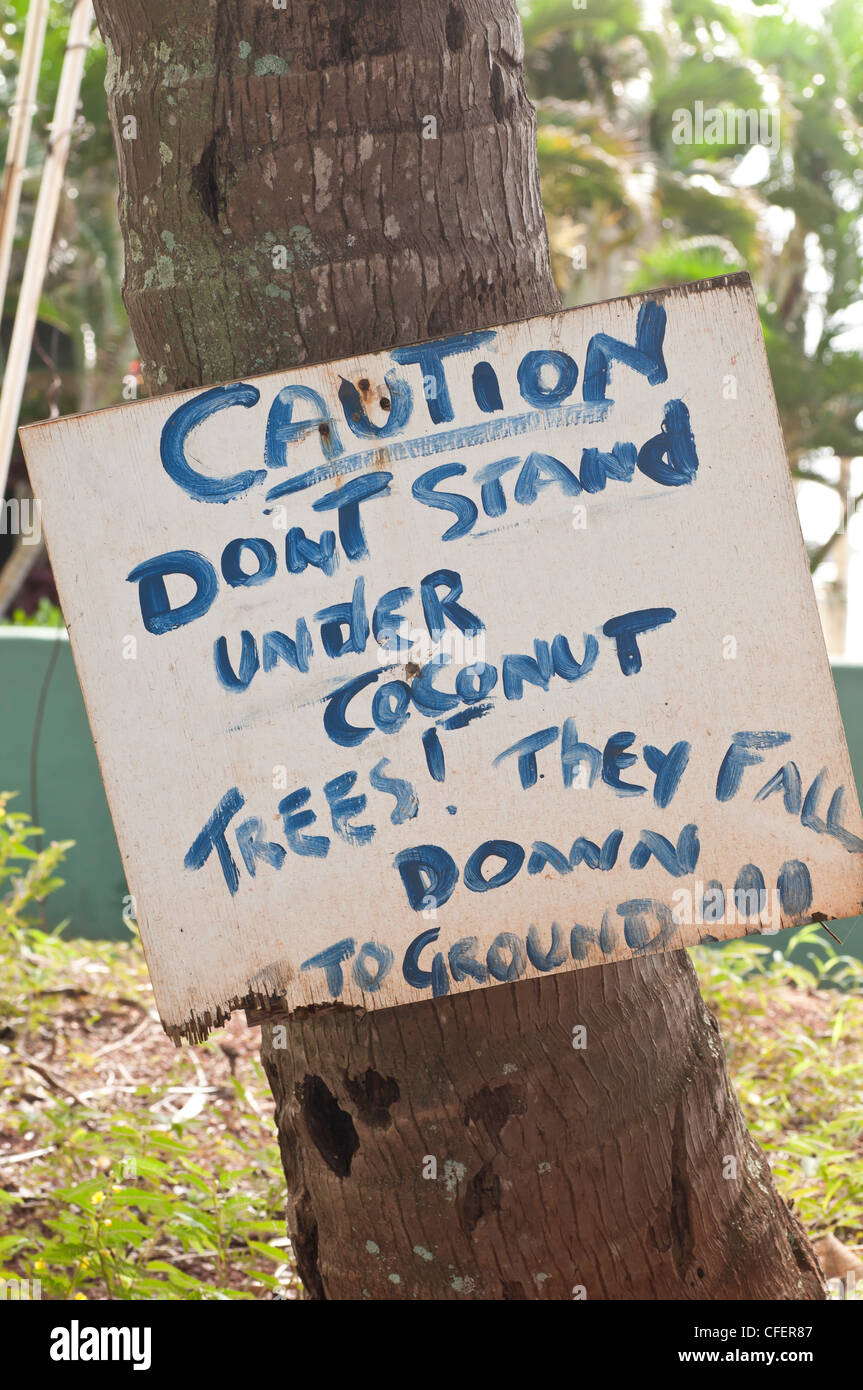 CAUTION
DONT STAND
UNDER
COCONUT
TREES! THEY FALL
DOWN
TO GROUND !!!
alamy
Image ID: CFER87
www.alamy.com